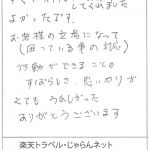 してくれました
よかったです。
お客様の立場になって
(困っている事の対応)
行動ができることの
すばらしさ、思いやりが
とてもうれしかった
ありがとうございます
楽天トラベル・じゃらんネット